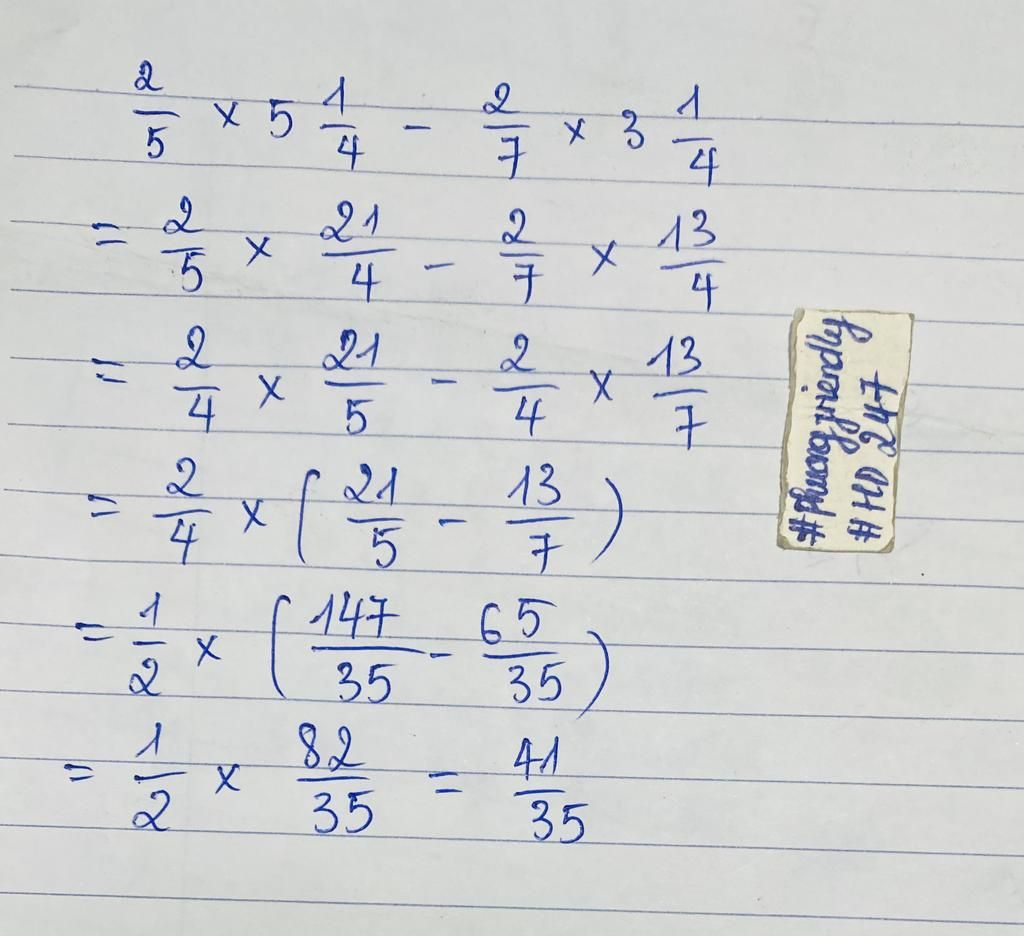 2/5 × 5 1/4 - 2/7 × 3 1/4
= 2/5 × 21/4 - 2/7 × 13/4
= 2/4 × 21/5 - 2/4 × 13/7
= 2/4 × (21/5 - 13/7)
= 1/2 × (147/35 - 65/35)
= 1/2 × 82/35 = 41/35
#Phuongfriendly
#HD 247